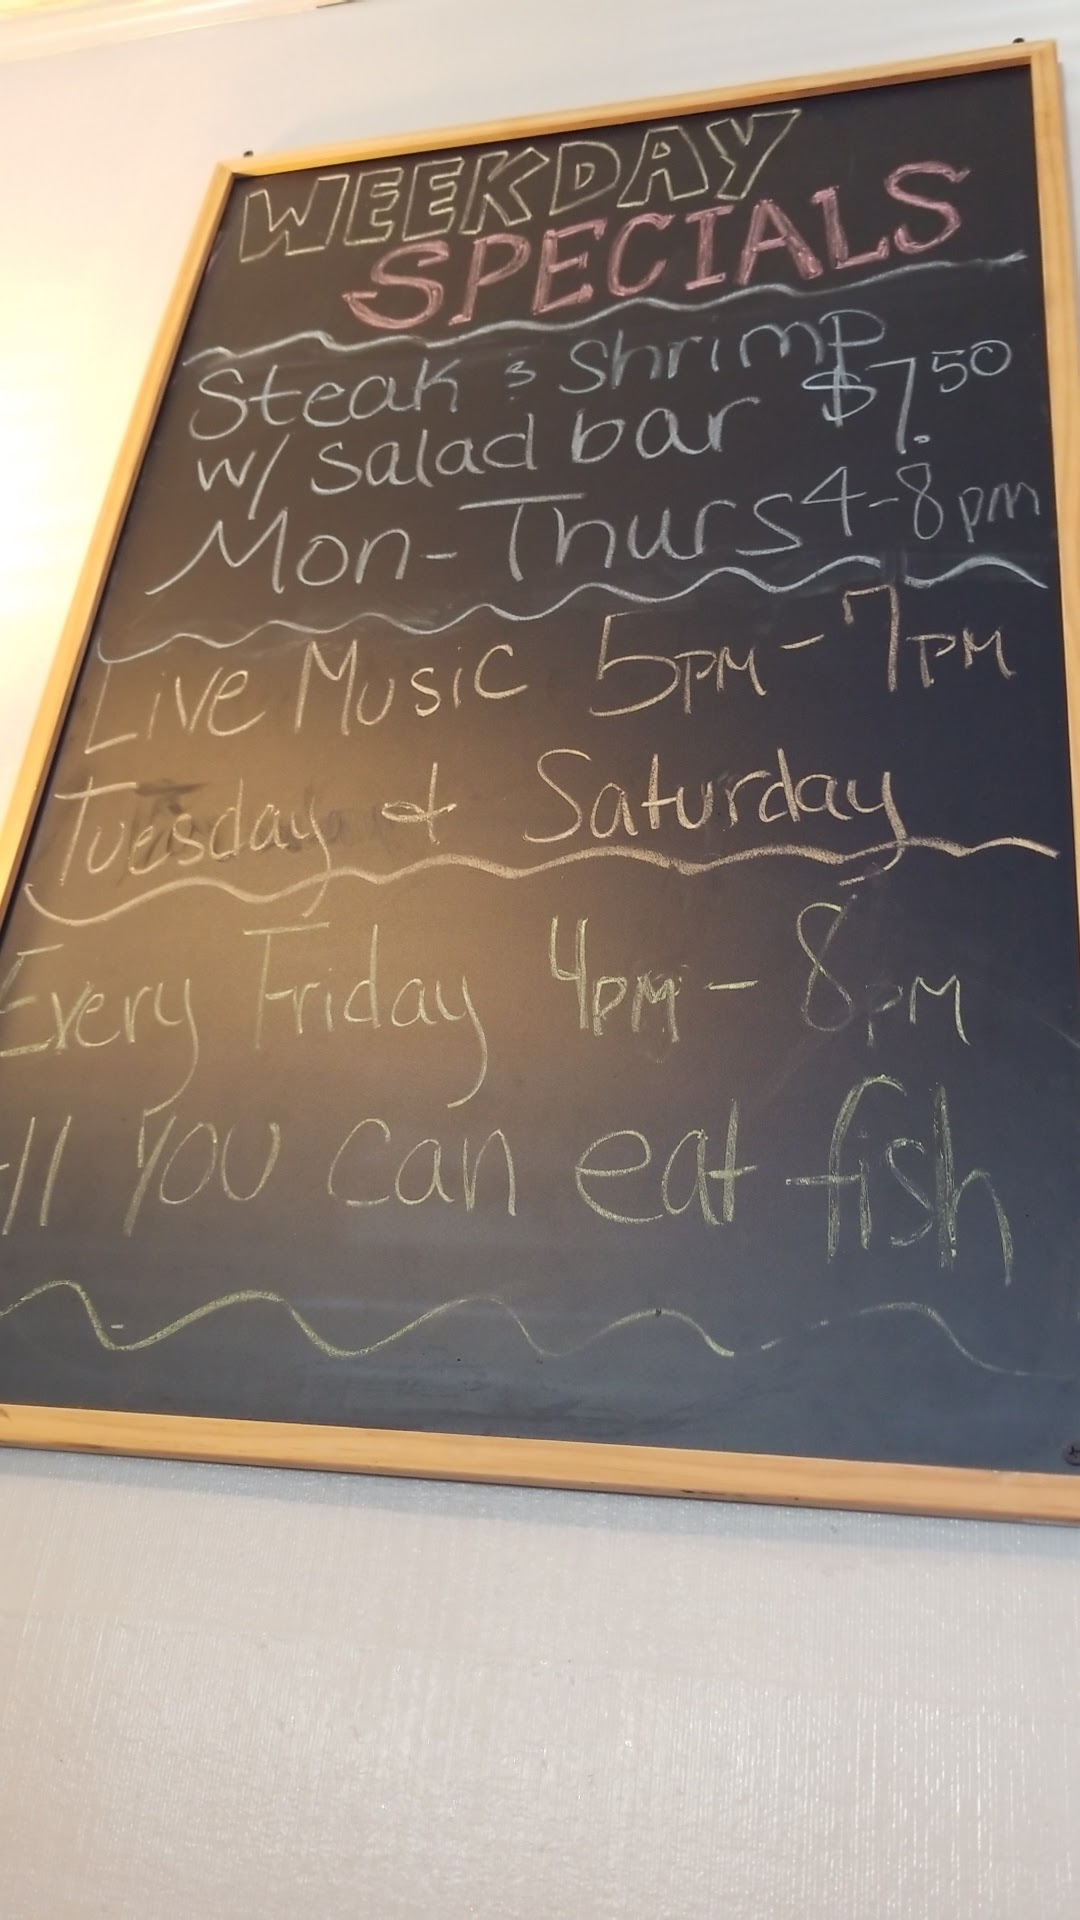 WEEKDAY
SPECIALS
Steak & Shrimp
w/ salad bar $7.50
Mon-Thurs 4-8pm
Live Music 5PM-7PM
Tuesday & Saturday
Every Friday 4PM-8PM
All You can eat fish